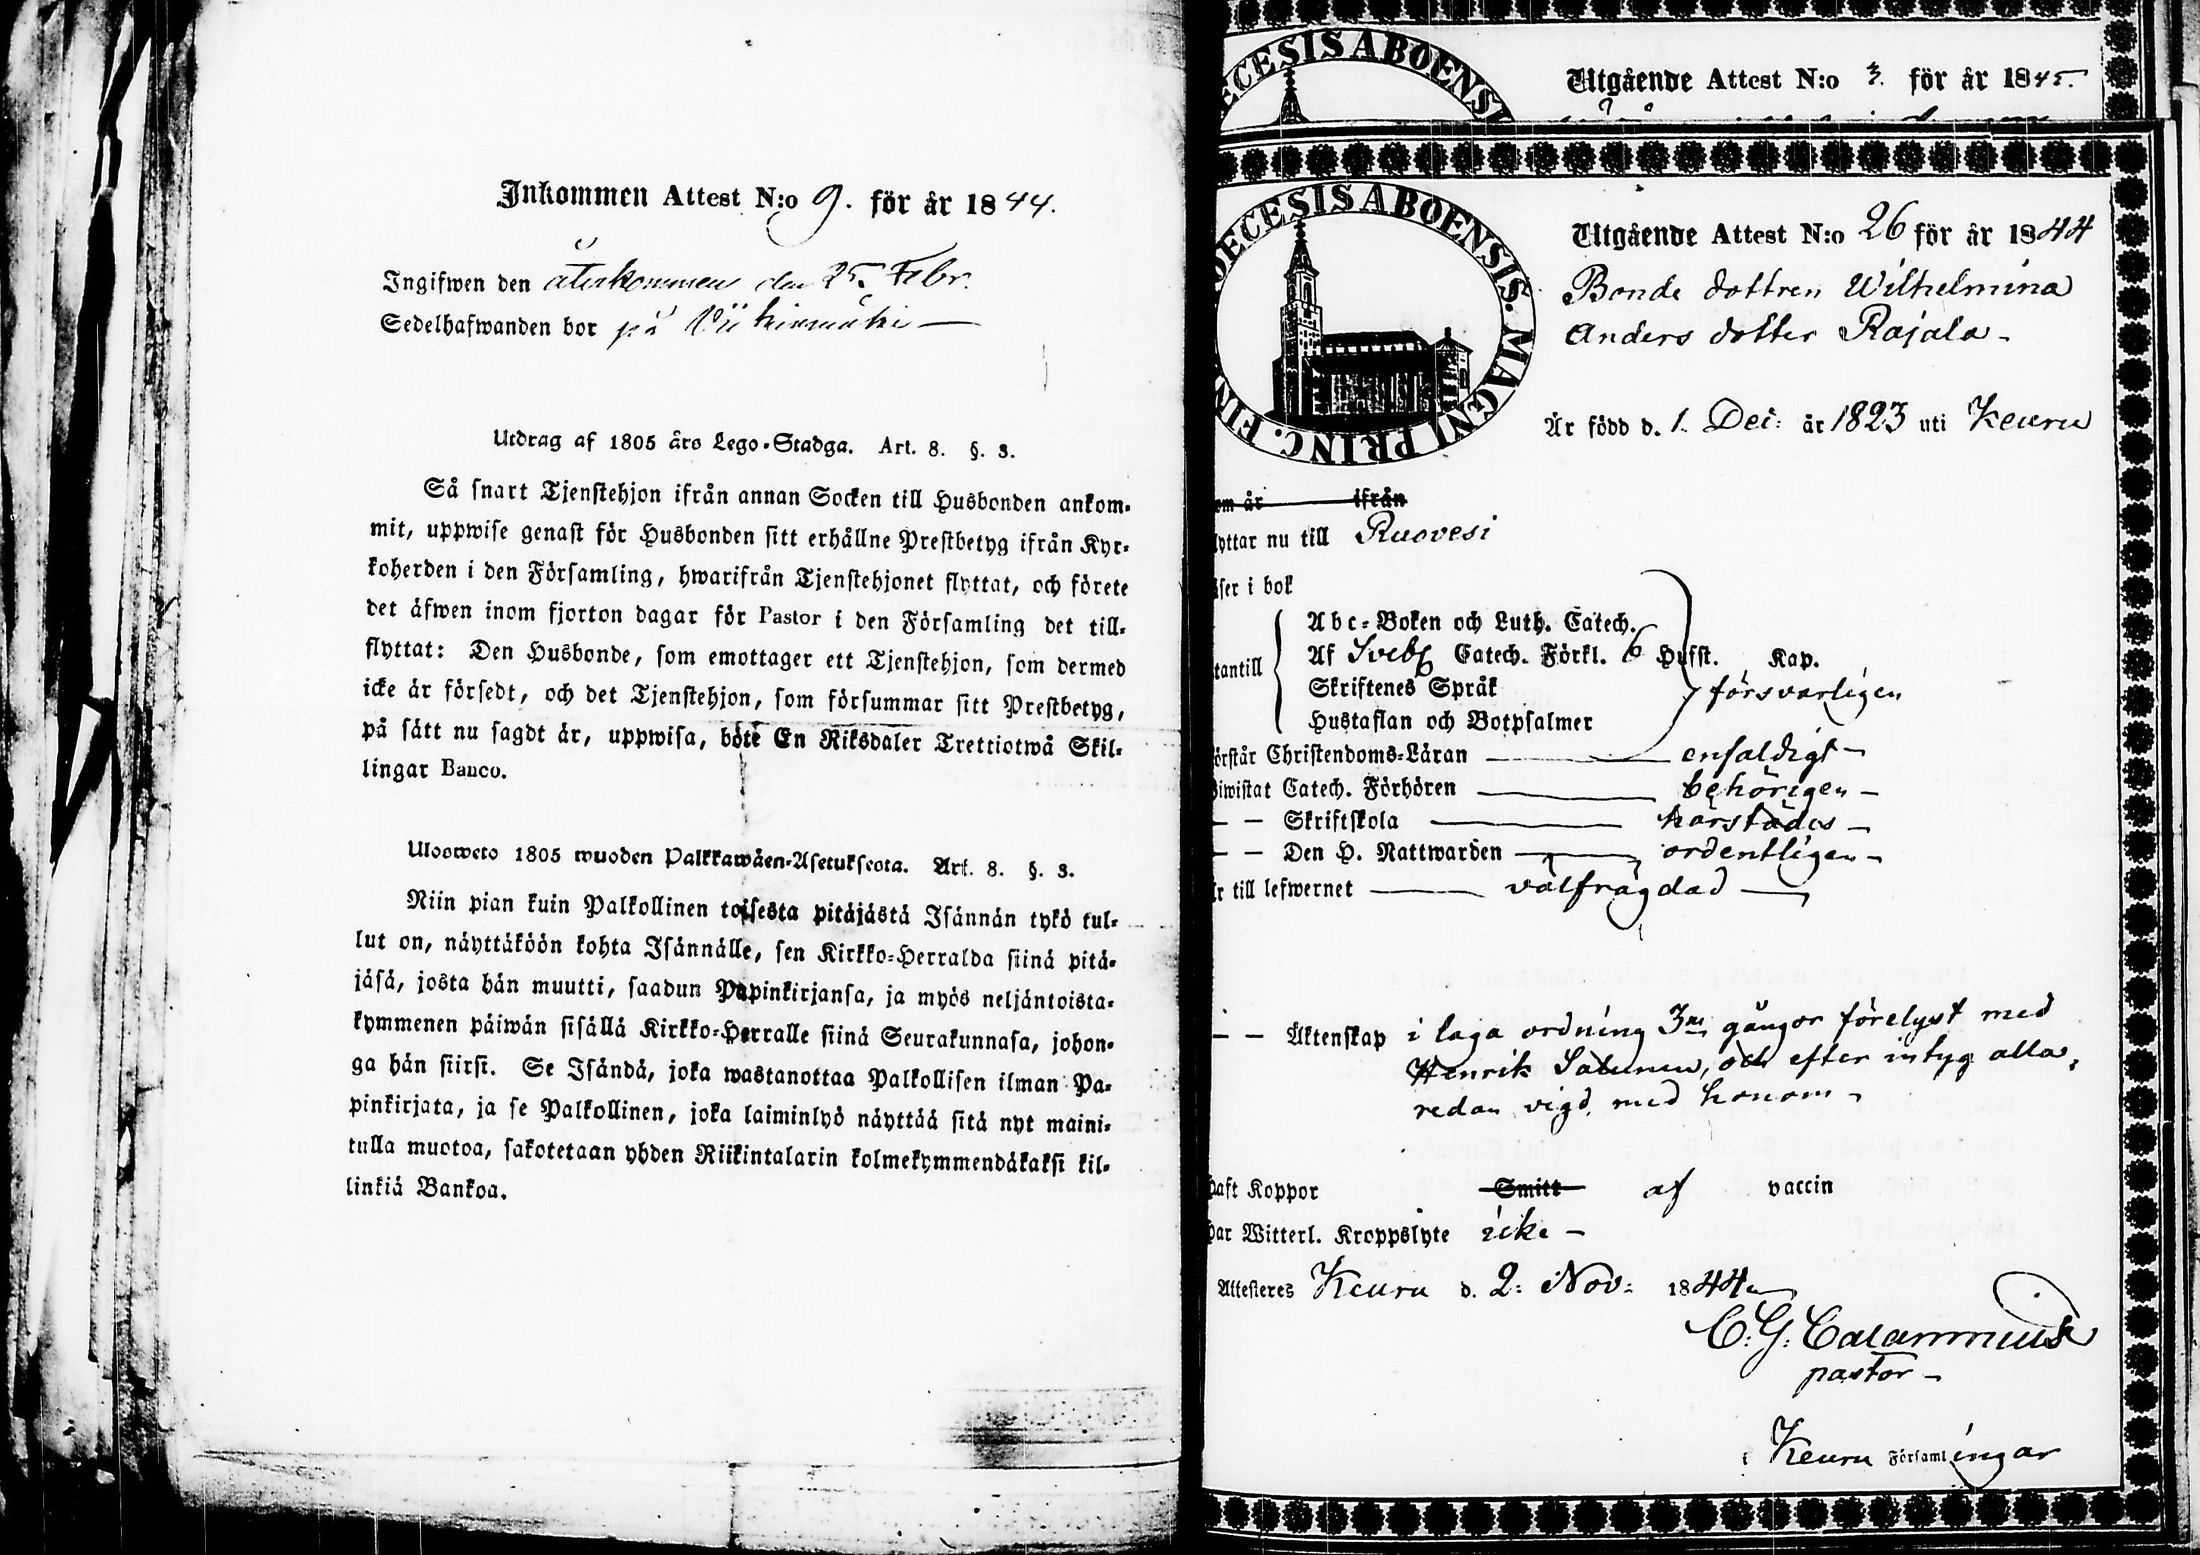 Inkommen Attest N:o 9. för år 1844.
Ingifwen den återkommen den 25. Febr.
Sedelhafwanden bor på
Utdrag af 1805 års Lego-Stadga. Art. 8. §. 3.
Så snart Tjenstehjon ifrån annan Socken till Husbonden ankom-
mit, uppwise genast för Husbonden sitt erhållne Prestbetyg ifrån Kyr-
koherden i den Församling, hwarifrån Tjenstehjonet flyttat, och förete
det äfwen inom fjorton dagar för Pastor i den Församling det till-
flyttat: Den Husbonde, som emottager ett Tjenstehjon, som dermed
icke är försedt, och det Tjenstehjon, som försummar sitt Prestbetyg,
på sätt nu sagdt är, uppwisa, böte En Riksdaler Trettiotwå Skil-
lingar Banco.
Uloswето 1805 wuoden Palkkawäen-Asetuksesta. Art. 8. §. 3.
Niin pian kuin Palkollinen toisesta pitäjästä Isännän tykö tul-
lut on, näyttäköön kohta Isännälle, sen Kirkko-Herralda siinä pitä-
jäsä, josta hän muutti, saadun Papinkirjansa, ja myös neljäntoista-
kymmenen päiwän sisällä Kirkko-Herralle siinä Seurakunnasa, johon-
ga hän siirsi. Se Isändä, joka wastanottaa Palkollisen ilman Pa-
pinkirjata, ja se Palkollinen, joka laiminlyö näyttää sitä nyt maini-
tulla muotoa, sakotetaan yhden Riikintalarin kolmekymmendäkaksi kil-
linkiä Bankoa.
ECESIS ABOENSI
Utgående Attest N:o 3. för år 1845.
DECESIS ABOENSIS. MAGNI PRINC. FIN
Utgående Attest N:o 26 för år 1844
Bonde dottren Wilhelmina
Anders dotter Rajala -
Är född d. 1. Dec: år 1823 uti Keuru
om år ifrån
lyttar nu till Ruovesi
äser i bok
Abc-Boken och Luth. Catech.
tantill Af Sveb Catech. Förkl. 6 Hufst. Kap.
Skriftenes Språk försvarligen
Hustaflan och Botpsalmer
örstår Christendoms-Läran enfaldigt -
Biwistat Catech. Förhören behörigen -
- - Skriftskola härstädes -
- - Den H. Nattwarden ordentligen -
r till lefwernet välfrägdad
- - Äktenskap i laga ordning 3ne gångor förelyst med
Henrik Salunen, och efter intyg alla-
redan vigd med honom -
haft Koppor Smitt af vaccin
har Witterl. Kroppslyte icke -
Attesteres Keuru d. 2: Nov: 1844
C. G. Calamnius
pastor -
i Keuru Församlingar